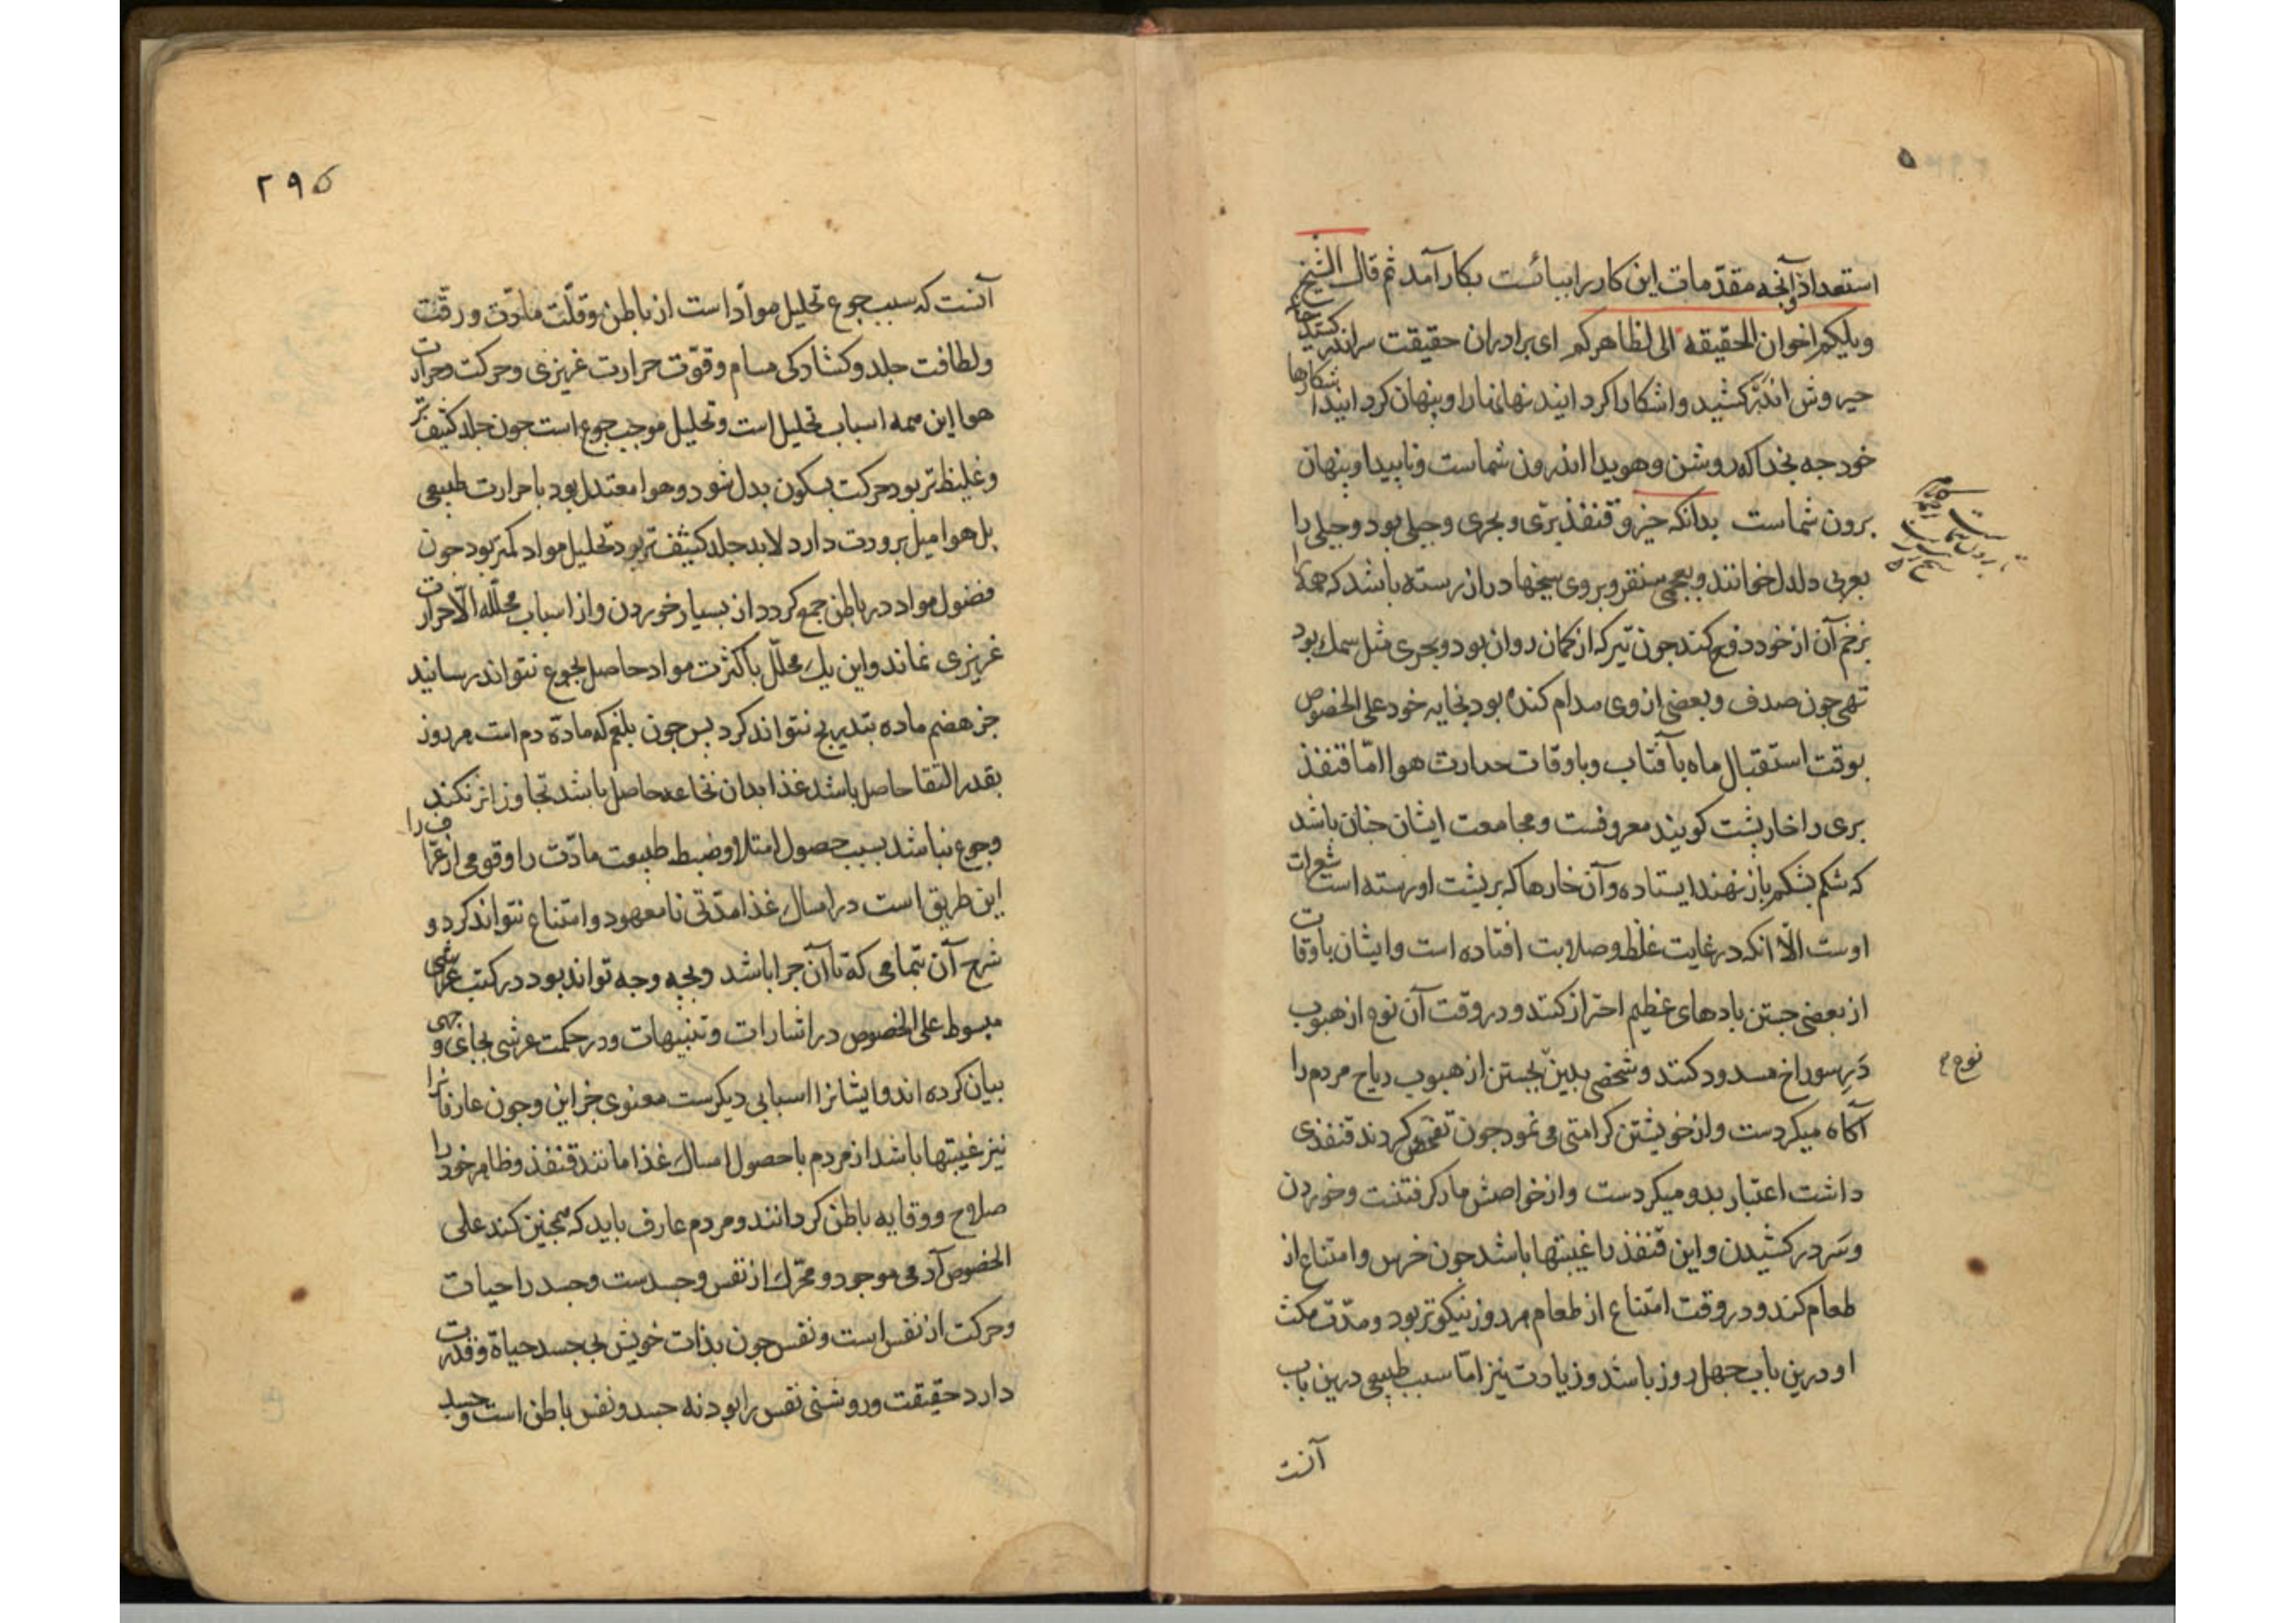 استعداد و آنچه مقدّمات این کار را ببائست بکار آمد ثم قال الشیخ
ویلکم اخوان الحقیقه الی لظاهرکم ای برادران حقیقت سر اندر کشید
چون خیروش اندر کشید و اشکارا کردانید نهانها را و پنهان کردانید اشکارها
خود چه بخدا که روشن و هویدا اندرون شماست و ناپیدا و پنهان
برون شماست بدانکه خیز و قنفذ برّی و بحری و جبلی بود و جبلی را
بعربی دلدل خوانند و بعجمی سنقر و بر وی سیخها دراز رسته باشد که همه
بزخم آن از خود دفع کند چون تیر که از کمان روان بود و بحری مثل سمك بود
تهی چون صدف و بعضی از وی مدام کنده بود بخایه خود علی الخصوص
بوقت استقبال ماه بآفتاب و باوقات حرارت هوا امّا قنفذ
بری را خارپشت کویند معروفست و مجامعت ایشان چنان باشد
که شکم بشکم باز نهند ایستاده و آن خارها که بر پشت او رسته است شعرات
اوست الّا انکه در غایت غلظ و صلابت افتاده است و ایشان باوقات
از بعضی جستن بادهای عظیم احتراز کنند و در وقت آن نوع از هبوب
دَرِ سوراخ مسدود کنند و شخصی بدین بجستن از هبوب ریاح مردم را
آکاه میکردست و از خویشتن کرامتی می نمود چون تفحّص کردند قنفذی
داشت اعتبار بدو میکردست و از خواصش مار کرفتنست و خوردن
و سَر در کشیدن و این قنفذ را غیبتها باشد چون خرس و امتناع از
طعام کند و در وقت امتناع از طعام هر روز نیکوتر بود و مدّت مکث
او درین باب چهل روز باشد و زیادت نیز امّا سبب طبیعی درین باب
آنست
نوع
۲۹۵
آنست که سبب جوع تحلیل موادّ است از باطن و قلّت مادّت و رقّت
ولطافت جلد و کشادکی مسام و قوّت حرارت غریزی و حرکت و حرارت
هوا این همه اسباب تحلیل است و تحلیل موجب جوع است چون جلد کثیف تر
وغلیظ تر بود حرکت بسکون بدل شود و هوا معتدل بود با حرارت طبیعی
بل هوا میل ببرودت دارد لابد جلد کثیف تر بود تحلیل مواد کمتر بود چون
فضول مواد در باطن جمع کردد از بسیار خوردن و از اسباب محلّله الّا حرارت
غریزی نماند و این یك محلّل با کثرت مواد حاصل بجوع نتواند رسانید
جز هضم ماده بتدریج نتواند کرد پس چون بلغم که مادّة دم است هر روز
بقدر التقا حاصل باشد غذا بدان نخاعه حاصل باشد تجاوز از نکند
وجوع نباشد بسبب حصول امتلا و ضبط طبیعت مادّت را و قومی از عرفا را
این طریق است در امساك غذا مدّتی نامعهود و امتناع نتواند کرد و
شرح آن بتمامی که تا آن چرا باشد و بچه وجه تواند بود در کتب عرشی
مبسوط علی الخصوص در اشارات و تنبیهات و در حکمت عرشی بجای و جهی
بیان کرده اند و ایشانرا اسبابی دیکرست معنوی جز این و چون عارفانرا
نیز غیبتها باشد از مردم با حصول امساك غذا مانند قنفذ و ظاهر خود را
صلاح و وقایه باطن کردانند و مردم عارف باید که همچنین کند علی
الخصوص آدمی موجود و محرّك از نفس و جسدست و جسد را حیات
وحرکت از نفس است و نفس چون بذات خویش بی جسد حیاة و قدرت
دارد حقیقت و روشنی نفس را بود نه جسد و نفس باطن است و جسد